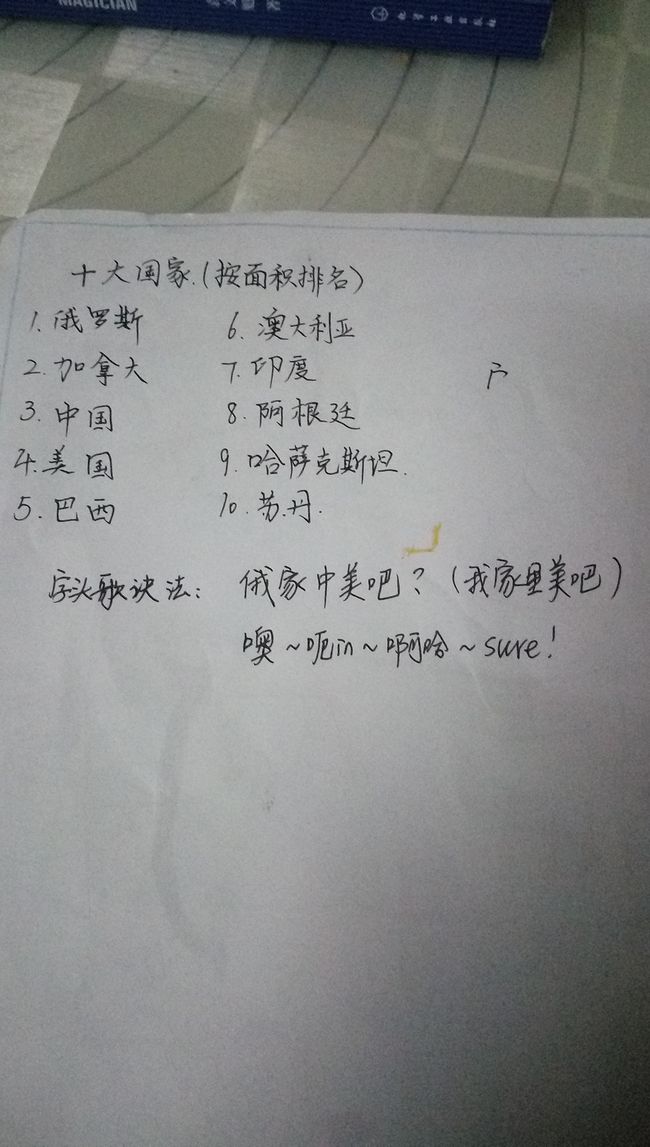 MAGICIAN
化学工业出版社
十大国家.(按面积排名)
1.俄罗斯 6.澳大利亚
2.加拿大 7.印度
3.中国 8.阿根廷
4.美国 9.哈萨克斯坦.
5.巴西 10.苏丹.
字头歌诀法: 俄家中美吧?(我家里美吧)
噢~呃in~啊哈~sure!